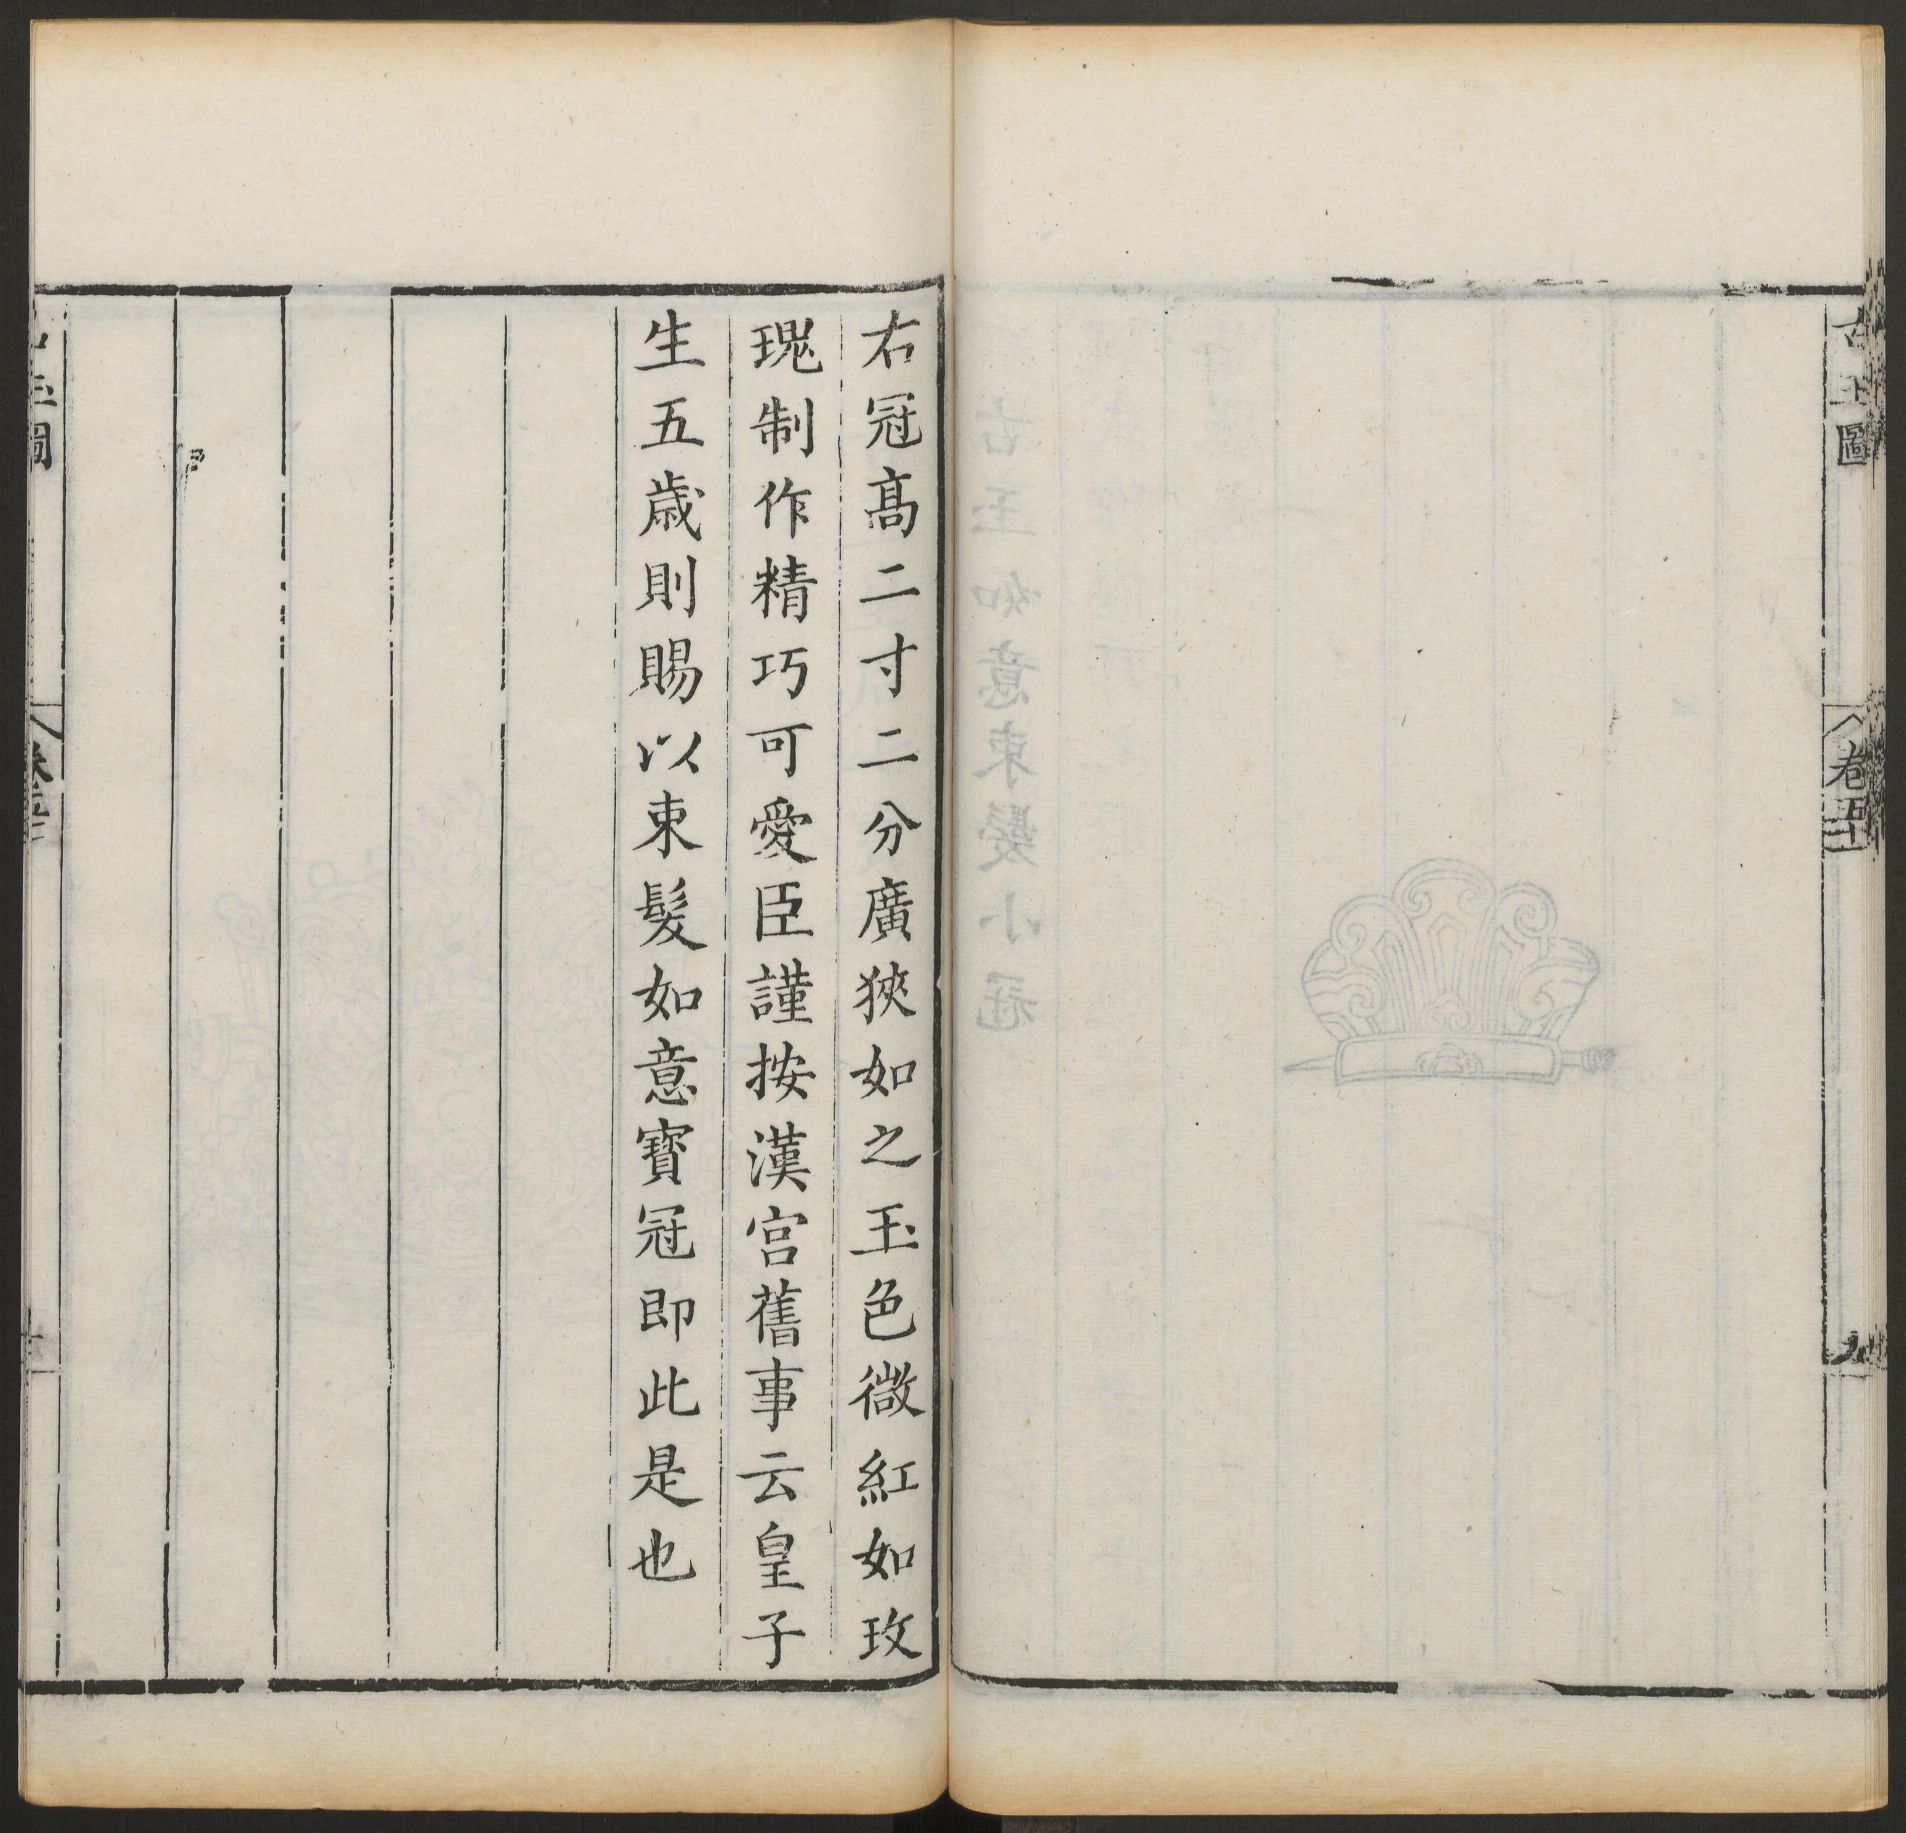 古玉圖
卷五十
九
右冠高二寸二分廣狹如之玉色微紅如玫
瑰制作精巧可愛臣謹按漢宮舊事云皇子
生五歲則賜以束髮如意寶冠即此是也